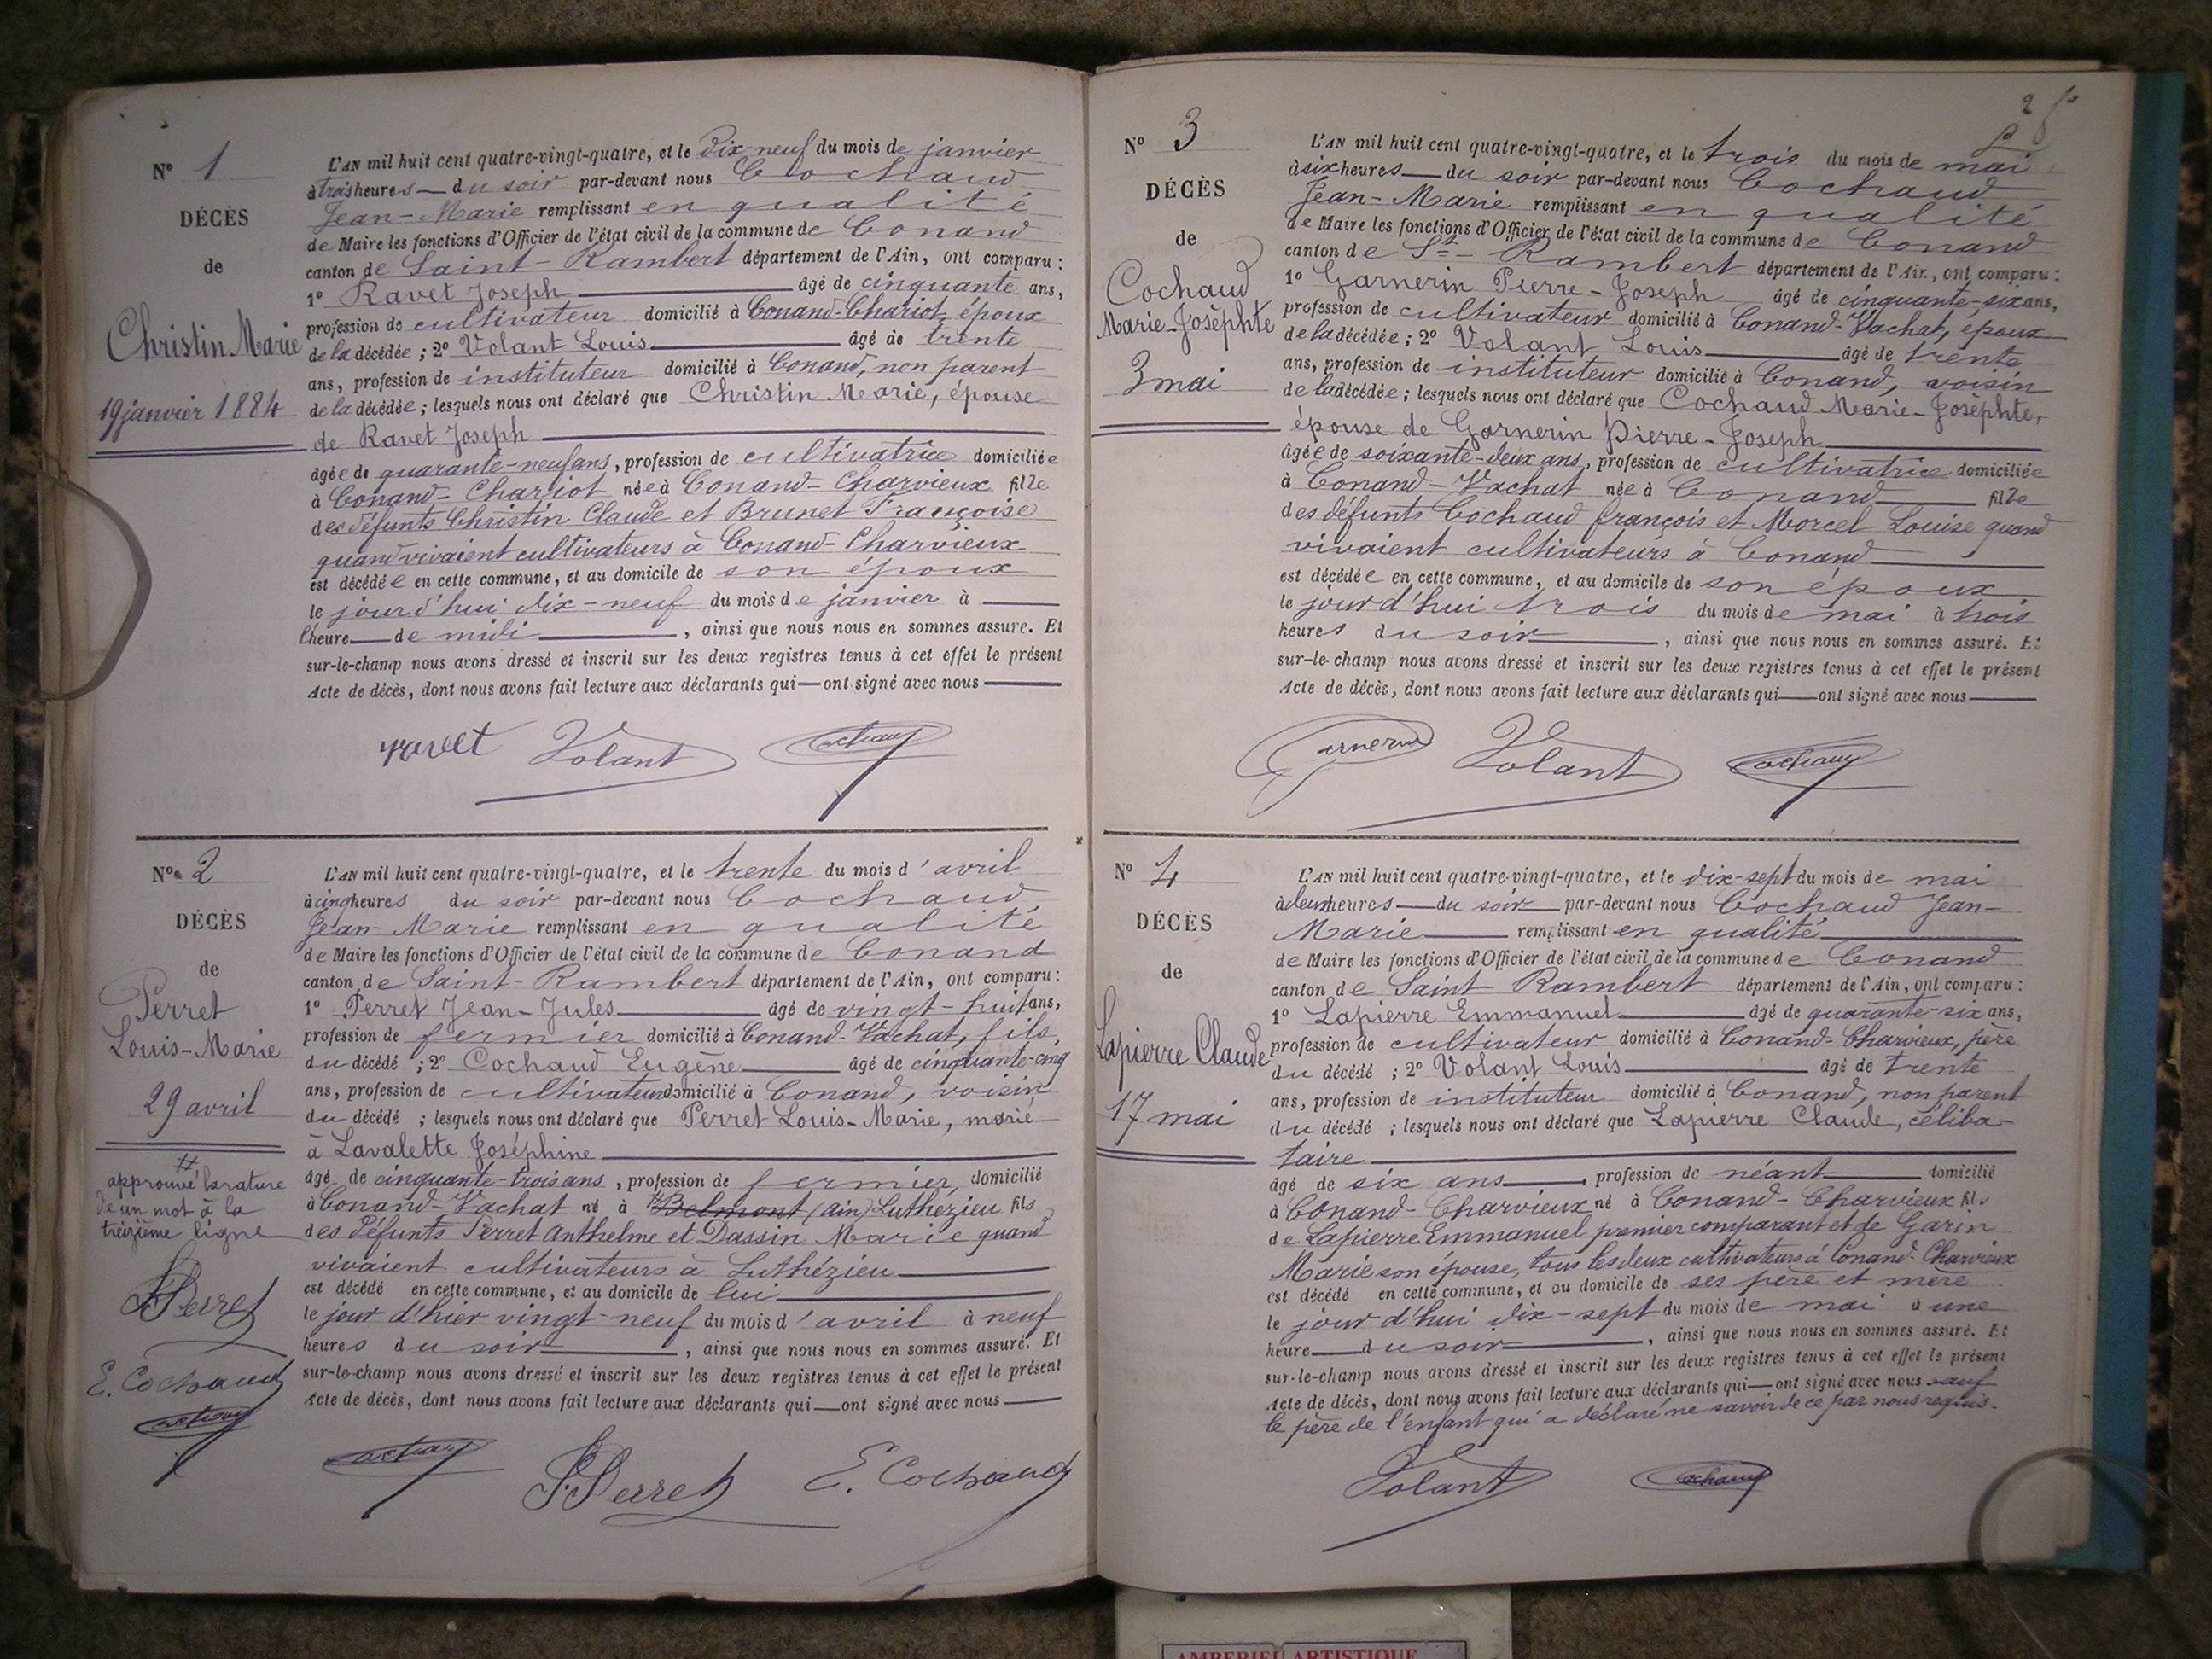 Nº 1
DÉCÈS
de
Christin Marie
19 janvier 1884
L'AN mil huit cent quatre-vingt-quatre, et le dix-neuf du mois de janvier
à trois heures — du soir par-devant nous Cochaud
Jean-Marie remplissant en qualité
de Maire les fonctions d'Officier de l'état civil de la commune de Conand
canton de Saint-Rambert département de l'Ain, ont comparu :
1º Ravet Joseph — âgé de cinquante ans,
profession de cultivateur domicilié à Conand-Chariot, époux
de la décédée ; 2º Volant Louis — âgé de trente
ans, profession de instituteur domicilié à Conand, non parent
de la décédée ; lesquels nous ont déclaré que Christin Marie, épouse
de Ravet Joseph —
âgée de quarante-neuf ans, profession de cultivatrice domiciliée
à Conand-Chariot née à Conand-Charvieux fille
des défunts Christin Claude et Brunet Françoise
quand vivaient cultivateurs à Conand-Charvieux
est décédée en cette commune, et au domicile de son époux
le jour d'hui dix-neuf du mois de janvier à —
l'heure — de midi —, ainsi que nous nous en sommes assuré. Et
sur-le-champ nous avons dressé et inscrit sur les deux registres tenus à cet effet le présent
Acte de décès, dont nous avons fait lecture aux déclarants qui — ont signé avec nous —
ravet Volant Cochaud
Nº 2
DÉCÈS
de
Perret
Louis-Marie
29 avril
# approuvé la rature
de un mot à la
treizième ligne
JPerret
E. Cochaud
Cochaud
L'AN mil huit cent quatre-vingt-quatre, et le trente du mois d'avril
à cinq heures du soir par-devant nous Cochaud
Jean-Marie remplissant en qualité
de Maire les fonctions d'Officier de l'état civil de la commune de Conand
canton de Saint-Rambert département de l'Ain, ont comparu :
1º Perret Jean-Jules — âgé de vingt-huit ans,
profession de fermier domicilié à Conand-Vachat, fils
du décédé ; 2º Cochaud Eugène — âgé de cinquante-cinq
ans, profession de cultivateur domicilié à Conand, voisin
du décédé ; lesquels nous ont déclaré que Perret Louis-Marie, marié
à Lavalette Joséphine —
âgé de cinquante-trois ans, profession de fermier, domicilié
à Conand-Vachat né à # Belmont (ain) Luthezieu fils
des défunts Perret Anthelme et Dassin Marie quand
vivaient cultivateurs à Luthézieu —
est décédé en cette commune, et au domicile de lui —
le jour d'hier vingt-neuf du mois d'avril à neuf
heures du soir —, ainsi que nous nous en sommes assuré. Et
sur-le-champ nous avons dressé et inscrit sur les deux registres tenus à cet effet le présent
Acte de décès, dont nous avons fait lecture aux déclarants qui — ont signé avec nous —
Cochaud JPerret E. Cochaud
2
Nº 3
DÉCÈS
de
Cochaud
Marie-Josèphte
3 mai
L'AN mil huit cent quatre-vingt-quatre, et le trois du mois de mai
à six heures — du soir par-devant nous Cochaud
Jean-Marie remplissant en qualité
de Maire les fonctions d'Officier de l'état civil de la commune de Conand
canton de St-Rambert département de l'Ain, ont comparu :
1º Garnerin Pierre-Joseph âgé de cinquante-six ans,
profession de cultivateur domicilié à Conand-Vachat, époux
de la décédée ; 2º Volant Louis — âgé de trente
ans, profession de instituteur domicilié à Conand, voisin
de la décédée ; lesquels nous ont déclaré que Cochaud Marie-Josèphte,
épouse de Garnerin Pierre-Joseph —
âgée de soixante-deux ans, profession de cultivatrice domiciliée
à Conand-Vachat née à Conand — fille
des défunts Cochaud françois et Morcel Louise quand
vivaient cultivateurs à Conand —
est décédée en cette commune, et au domicile de son époux
le jour d'hui trois du mois de mai à trois
heures du soir —, ainsi que nous nous en sommes assuré. Et
sur-le-champ nous avons dressé et inscrit sur les deux registres tenus à cet effet le présent
Acte de décès, dont nous avons fait lecture aux déclarants qui — ont signé avec nous —
Garnerin Volant Cochaud
Nº 4
DÉCÈS
de
Lapierre Claude
17 mai
L'AN mil huit cent quatre-vingt-quatre, et le dix-sept du mois de mai
à deux heures — du soir — par-devant nous Cochaud Jean-
Marie — remplissant en qualité —
de Maire les fonctions d'Officier de l'état civil de la commune de Conand
canton de Saint-Rambert département de l'Ain, ont comparu :
1º Lapierre Emmanuel — âgé de quarante-six ans,
profession de cultivateur domicilié à Conand-Charvieux, père
du décédé ; 2º Volant Louis — âgé de trente
ans, profession de instituteur domicilié à Conand, non parent
du décédé ; lesquels nous ont déclaré que Lapierre Claude, céliba-
taire —
âgé de six ans —, profession de néant — domicilié
à Conand-Charvieux né à Conand-Charvieux fils
de Lapierre Emmanuel premier comparant et de Garin
Marie son épouse, tous les deux cultivateurs à Conand-Charvieux
est décédé en cette commune, et au domicile de ses père et mère
le jour d'hui dix-sept du mois de mai à une
heure — du soir —, ainsi que nous nous en sommes assuré. Et
sur-le-champ nous avons dressé et inscrit sur les deux registres tenus à cet effet le présent
Acte de décès, dont nous avons fait lecture aux déclarants qui — ont signé avec nous sauf
le père de l'enfant qui a déclaré ne savoir de ce par nous requis.
Volant Cochaud
AMBERIEU ARTISTIQUE